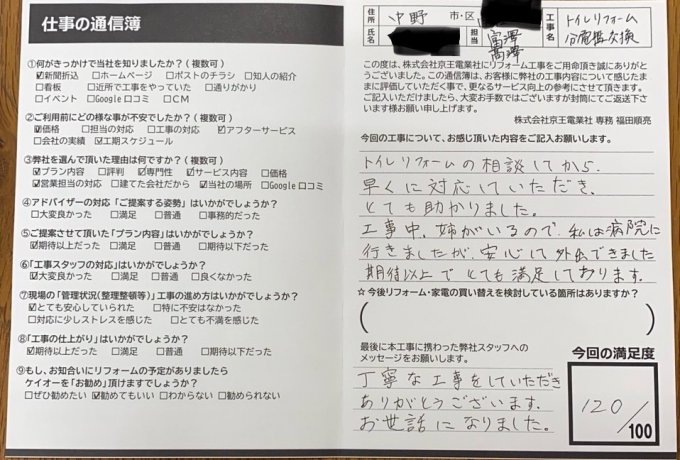 仕事の通信簿
①何がきっかけで当社を知りましたか？（複数可）
☑新聞折込 □ホームページ □ポストのチラシ □知人の紹介
□看板 □近所で工事をやっていた □通りがかり
□イベント □Google口コミ □ＣＭ
②ご利用前にどの様な事が不安でしたか？（複数可）
☑価格 □担当の対応 □工事の対応 ☑アフターサービス
□会社の実績 ☑工期スケジュール
③弊社を選んで頂いた理由は何ですか？（複数可）
☑プラン内容 □評判 ☑専門性 ☑サービス内容 □価格
☑営業担当の対応 □建てた会社だから ☑当社の場所 □Google口コミ
④アドバイザーの対応「ご提案する姿勢」はいかがでしょうか？
□大変良かった □満足 □普通 □事務的だった
⑤ご提案させて頂いた「プラン内容」はいかがでしょうか？
☑期待以上だった □満足 □普通 □期待以下だった
⑥「工事スタッフの対応」はいかがでしょうか？
☑大変良かった □満足 □普通 □良くなかった
⑦現場の「管理状況(整理整頓等)」工事の進め方はいかがでしょうか？
☑とても安心していられた □特に不安はなかった
□対応に少しストレスを感じた □とても不満を感じた
⑧「工事の仕上がり」はいかがでしょうか？
☑期待以上だった □満足 □普通 □期待以下だった
⑨もし、お知合いにリフォームの予定がありましたら
ケイオーを「お勧め」頂けますでしょうか？
□ぜひ勧めたい ☑勧めてもいい □わからない □勧められない
住所 中野 市・区
氏名
担当 富澤 高澤
工事名 トイレリフォーム 分電盤交換
この度は、株式会社京王電業社にリフォーム工事をご用命頂き誠にありがとうございました。この通信簿は、お客様に弊社の工事内容について感じたままに評価していただく事で、更なるサービス向上の参考にさせて頂きます。
ご記入いただけましたら、大変お手数ではございますが封筒にてご返送下さいます様お願い申し上げます。
株式会社京王電業社 専務 福田順亮
今回の工事について、お感じ頂いた内容をご記入お願いします。
トイレリフォームの相談してから、
早くに対応していただき、
とても助かりました。
工事中、姉がいるので、私は病院に
行きましたが、安心して外出できました
期待以上でとても満足しております。
☆今後リフォーム・家電の買い替えを検討している箇所はありますか？
( )
最後に本工事に携わった弊社スタッフへの
メッセージをお願いします。
丁寧な工事をしていただき
ありがとうございます。
お世話になりました。
今回の満足度
120/100